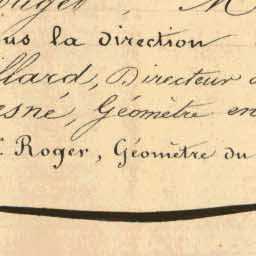 ous la direction
llard, Directeur
esné, Géomètre en
Roger, Géomètre du